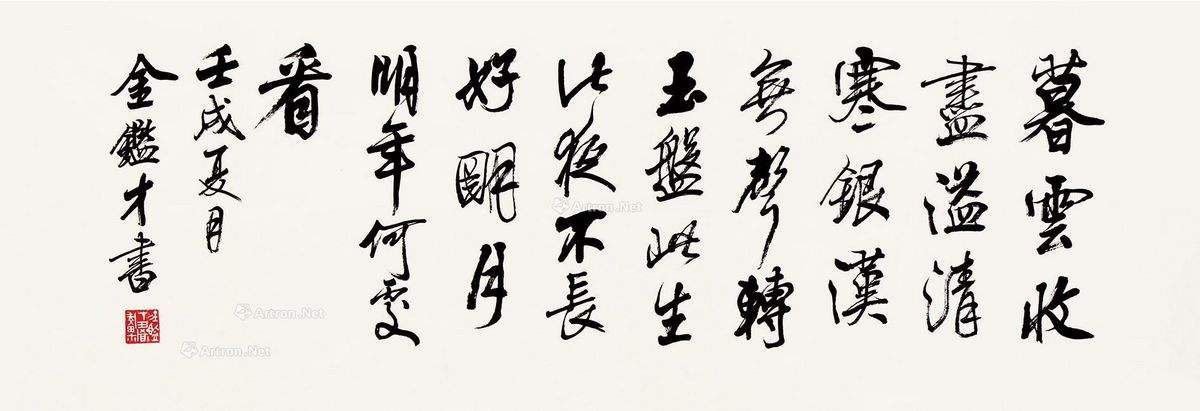 暮雲收
盡溢清
寒銀漢
無聲轉
玉盤此生
此夜不長
好朙月
明年何處
看
壬戌夏月
金鑑才書
Artron.Net
Artron.Net
Artron.Net